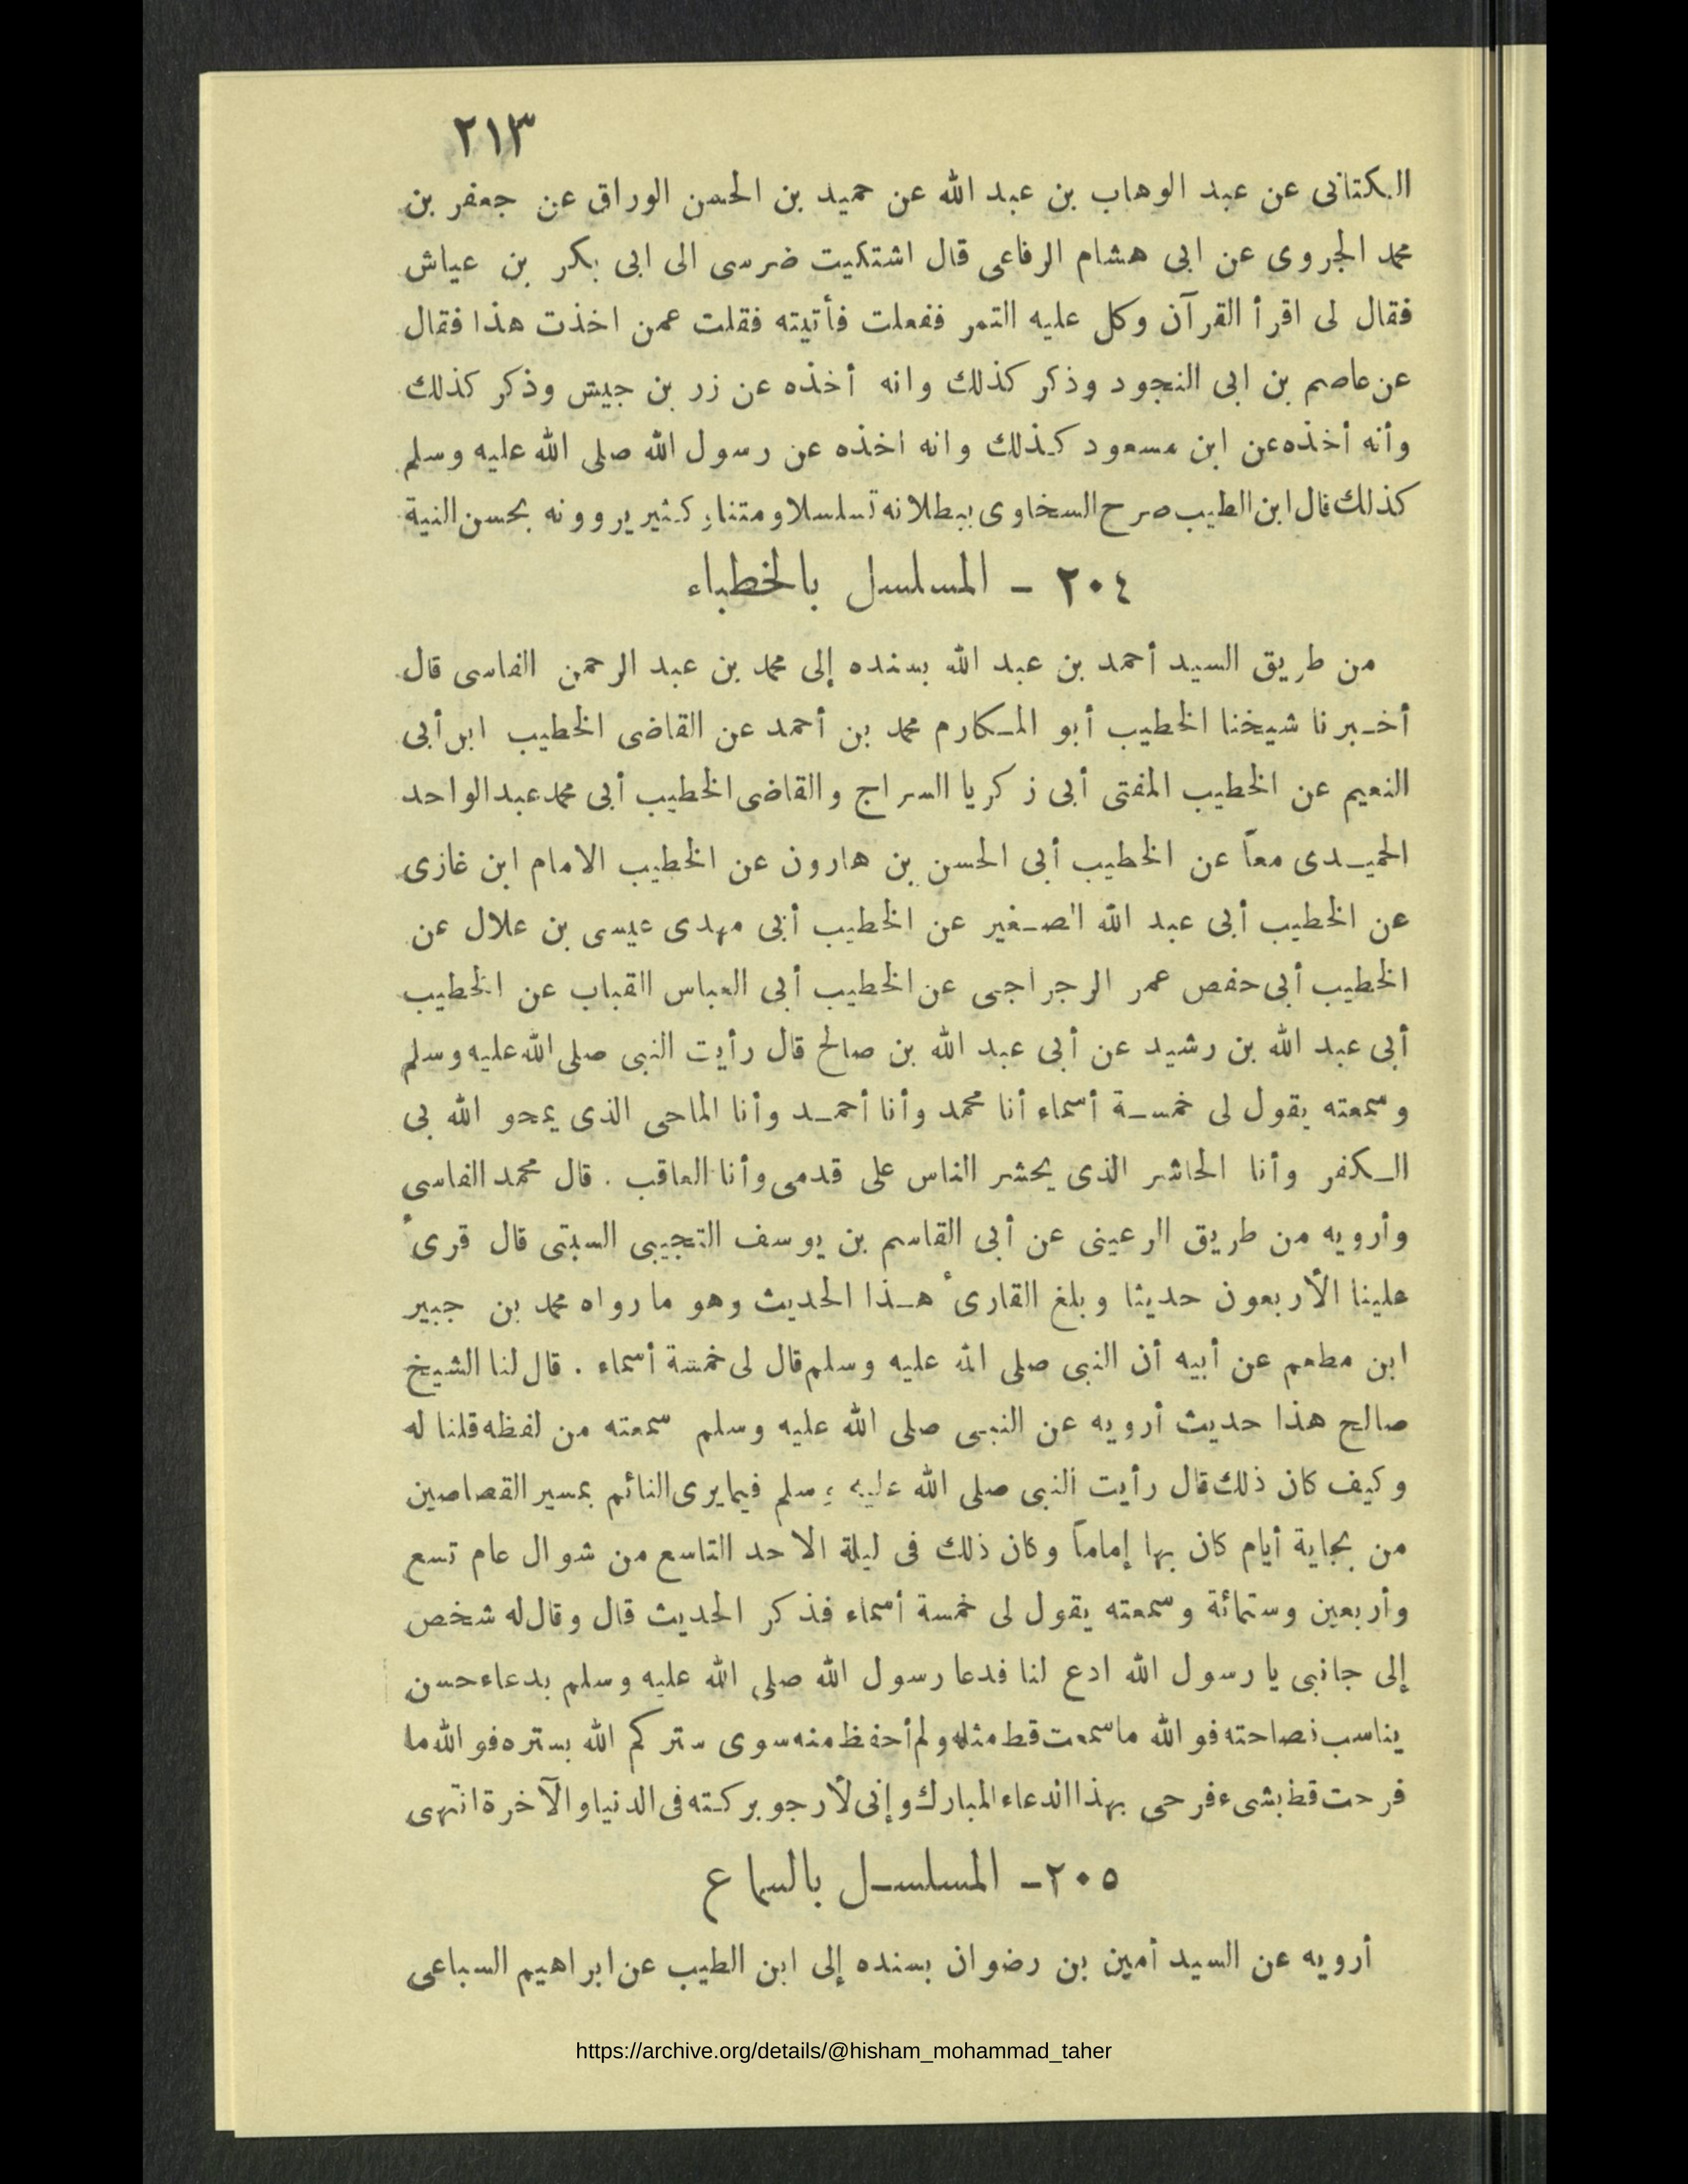 ٢١٣
الكتانى عن عبد الوهاب بن عبد الله عن حميد بن الحسن الوراق عن جعفر بن
محمد الجروى عن ابى هشام الرفاعى قال اشتكيت ضرسى الى ابى بكر بن عياش
فقال لى اقرأ القرآن وكل عليه التمر ففعلت فأتيته فقلت عمن اخذت هذا فقال
عن عاصم بن ابى النجود وذكر كذلك وانه أخذه عن زر بن جيش وذكر كذلك
وأنه أخذه عن ابن مسعود كذلك وانه اخذه عن رسول الله صلى الله عليه وسلم
كذلك قال ابن الطيب صرح السخاوى ببطلانه تسلسلا ومتنا وكثير يروونه بحسن النية
٢٠٤ - المسلسل بالخطباء
من طريق السيد أحمد بن عبد الله بسنده إلى محمد بن عبد الرحمن الفاسى قال
أخبرنا شيخنا الخطيب أبو المكارم محمد بن أحمد عن القاضى الخطيب ابن أبى
النعيم عن الخطيب المفتى أبى زكريا السراج والقاضى الخطيب أبى محمد عبد الواحد
الحميدى معاً عن الخطيب أبى الحسن بن هارون عن الخطيب الامام ابن غازى
عن الخطيب أبى عبد الله الصغير عن الخطيب أبى مهدى عيسى بن علال عن
الخطيب أبى حفص عمر الرجراجى عن الخطيب أبى العباس القباب عن الخطيب
أبى عبد الله بن رشيد عن أبى عبد الله بن صالح قال رأيت النبى صلى الله عليه وسلم
وسمعته يقول لى خمسة أسماء أنا محمد وأنا أحمد وأنا الماحى الذى يمحو الله بى
الكفر وأنا الحاشر الذى يحشر الناس على قدمى وأنا العاقب . قال محمد الفاسى
وأرويه من طريق الرعينى عن أبى القاسم بن يوسف التجيبى السبتى قال قرىء
علينا الأربعون حديثا وبلغ القارىء هذا الحديث وهو ما رواه محمد بن جبير
ابن مطعم عن أبيه أن النبى صلى الله عليه وسلم قال لى خمسة أسماء . قال لنا الشيخ
صالح هذا حديث أرويه عن النبى صلى الله عليه وسلم سمعته من لفظه قلنا له
وكيف كان ذلك قال رأيت النبى صلى الله عليه وسلم فيما يرى النائم بمسير القصاصين
من بجاية أيام كان بها إماماً وكان ذلك فى ليلة الاحد التاسع من شوال عام تسع
وأربعين وستمائة وسمعته يقول لى خمسة أسماء فذكر الحديث قال وقال له شخص
إلى جانبى يا رسول الله ادع لنا فدعا رسول الله صلى الله عليه وسلم بدعاء حسن
يناسب فصاحته فو الله ما سمعت قط مثله ولم أحفظ منه سوى ستركم الله بستره فو الله ما
فرحت قط بشىء فرحى بهذا الدعاء المبارك وإنى لأرجو بركته فى الدنيا والآخرة انتهى
٢٠٥ - المسلسل بالسماع
أرويه عن السيد أمين بن رضوان بسنده إلى ابن الطيب عن ابراهيم السباعى
https://archive.org/details/@hisham_mohammad_taher